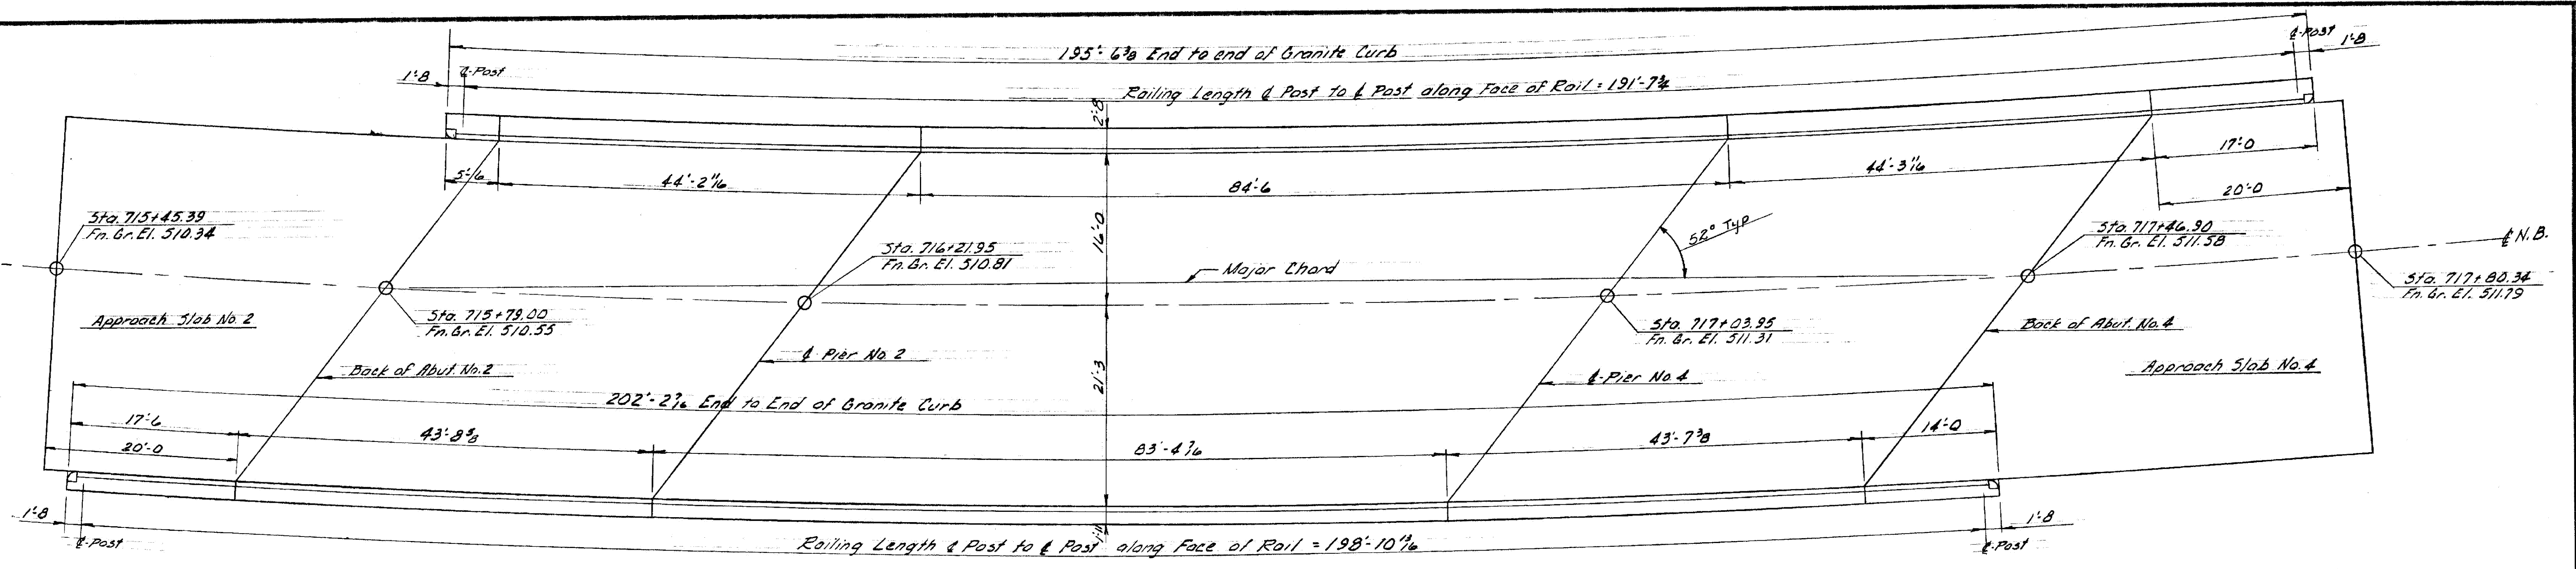 195'-6⅜ End to end of Granite Curb
℄-Post
1'-8
1'-8
℄-Post
Railing Length ℄ Post to ℄ Post along Face of Rail = 191'-7¾
2'-8
17'-0
44'-2 11/16
84'-6
44'-3 1/16
20'-0
Sta. 715+45.39
Fn. Gr. El. 510.34
16'-0
52° Typ
Sta. 716+21.95
Fn. Gr. El. 510.81
Sta. 717+46.90
Fn. Gr. El. 511.58
℄ N.B.
Major Chord
Sta. 717+80.34
Fn. Gr. El. 511.79
Approach Slab No. 2
Sta. 715+79.00
Fn. Gr. El. 510.55
Sta. 717+03.95
Fn. Gr. El. 511.31
Back of Abut. No. 4
℄ Pier No. 2
Back of Abut. No. 2
21'-3
℄-Pier No. 4
Approach Slab No. 4
202'-2 7/16 End to End of Granite Curb
17'-6
43'-8⅝
83'-4 7/16
43'-7⅜
14'-0
20'-0
1'-8
℄-Post
1'-11
Railing Length ℄ Post to ℄ Post along Face of Rail = 198'-10 13/16
1'-8
℄-Post